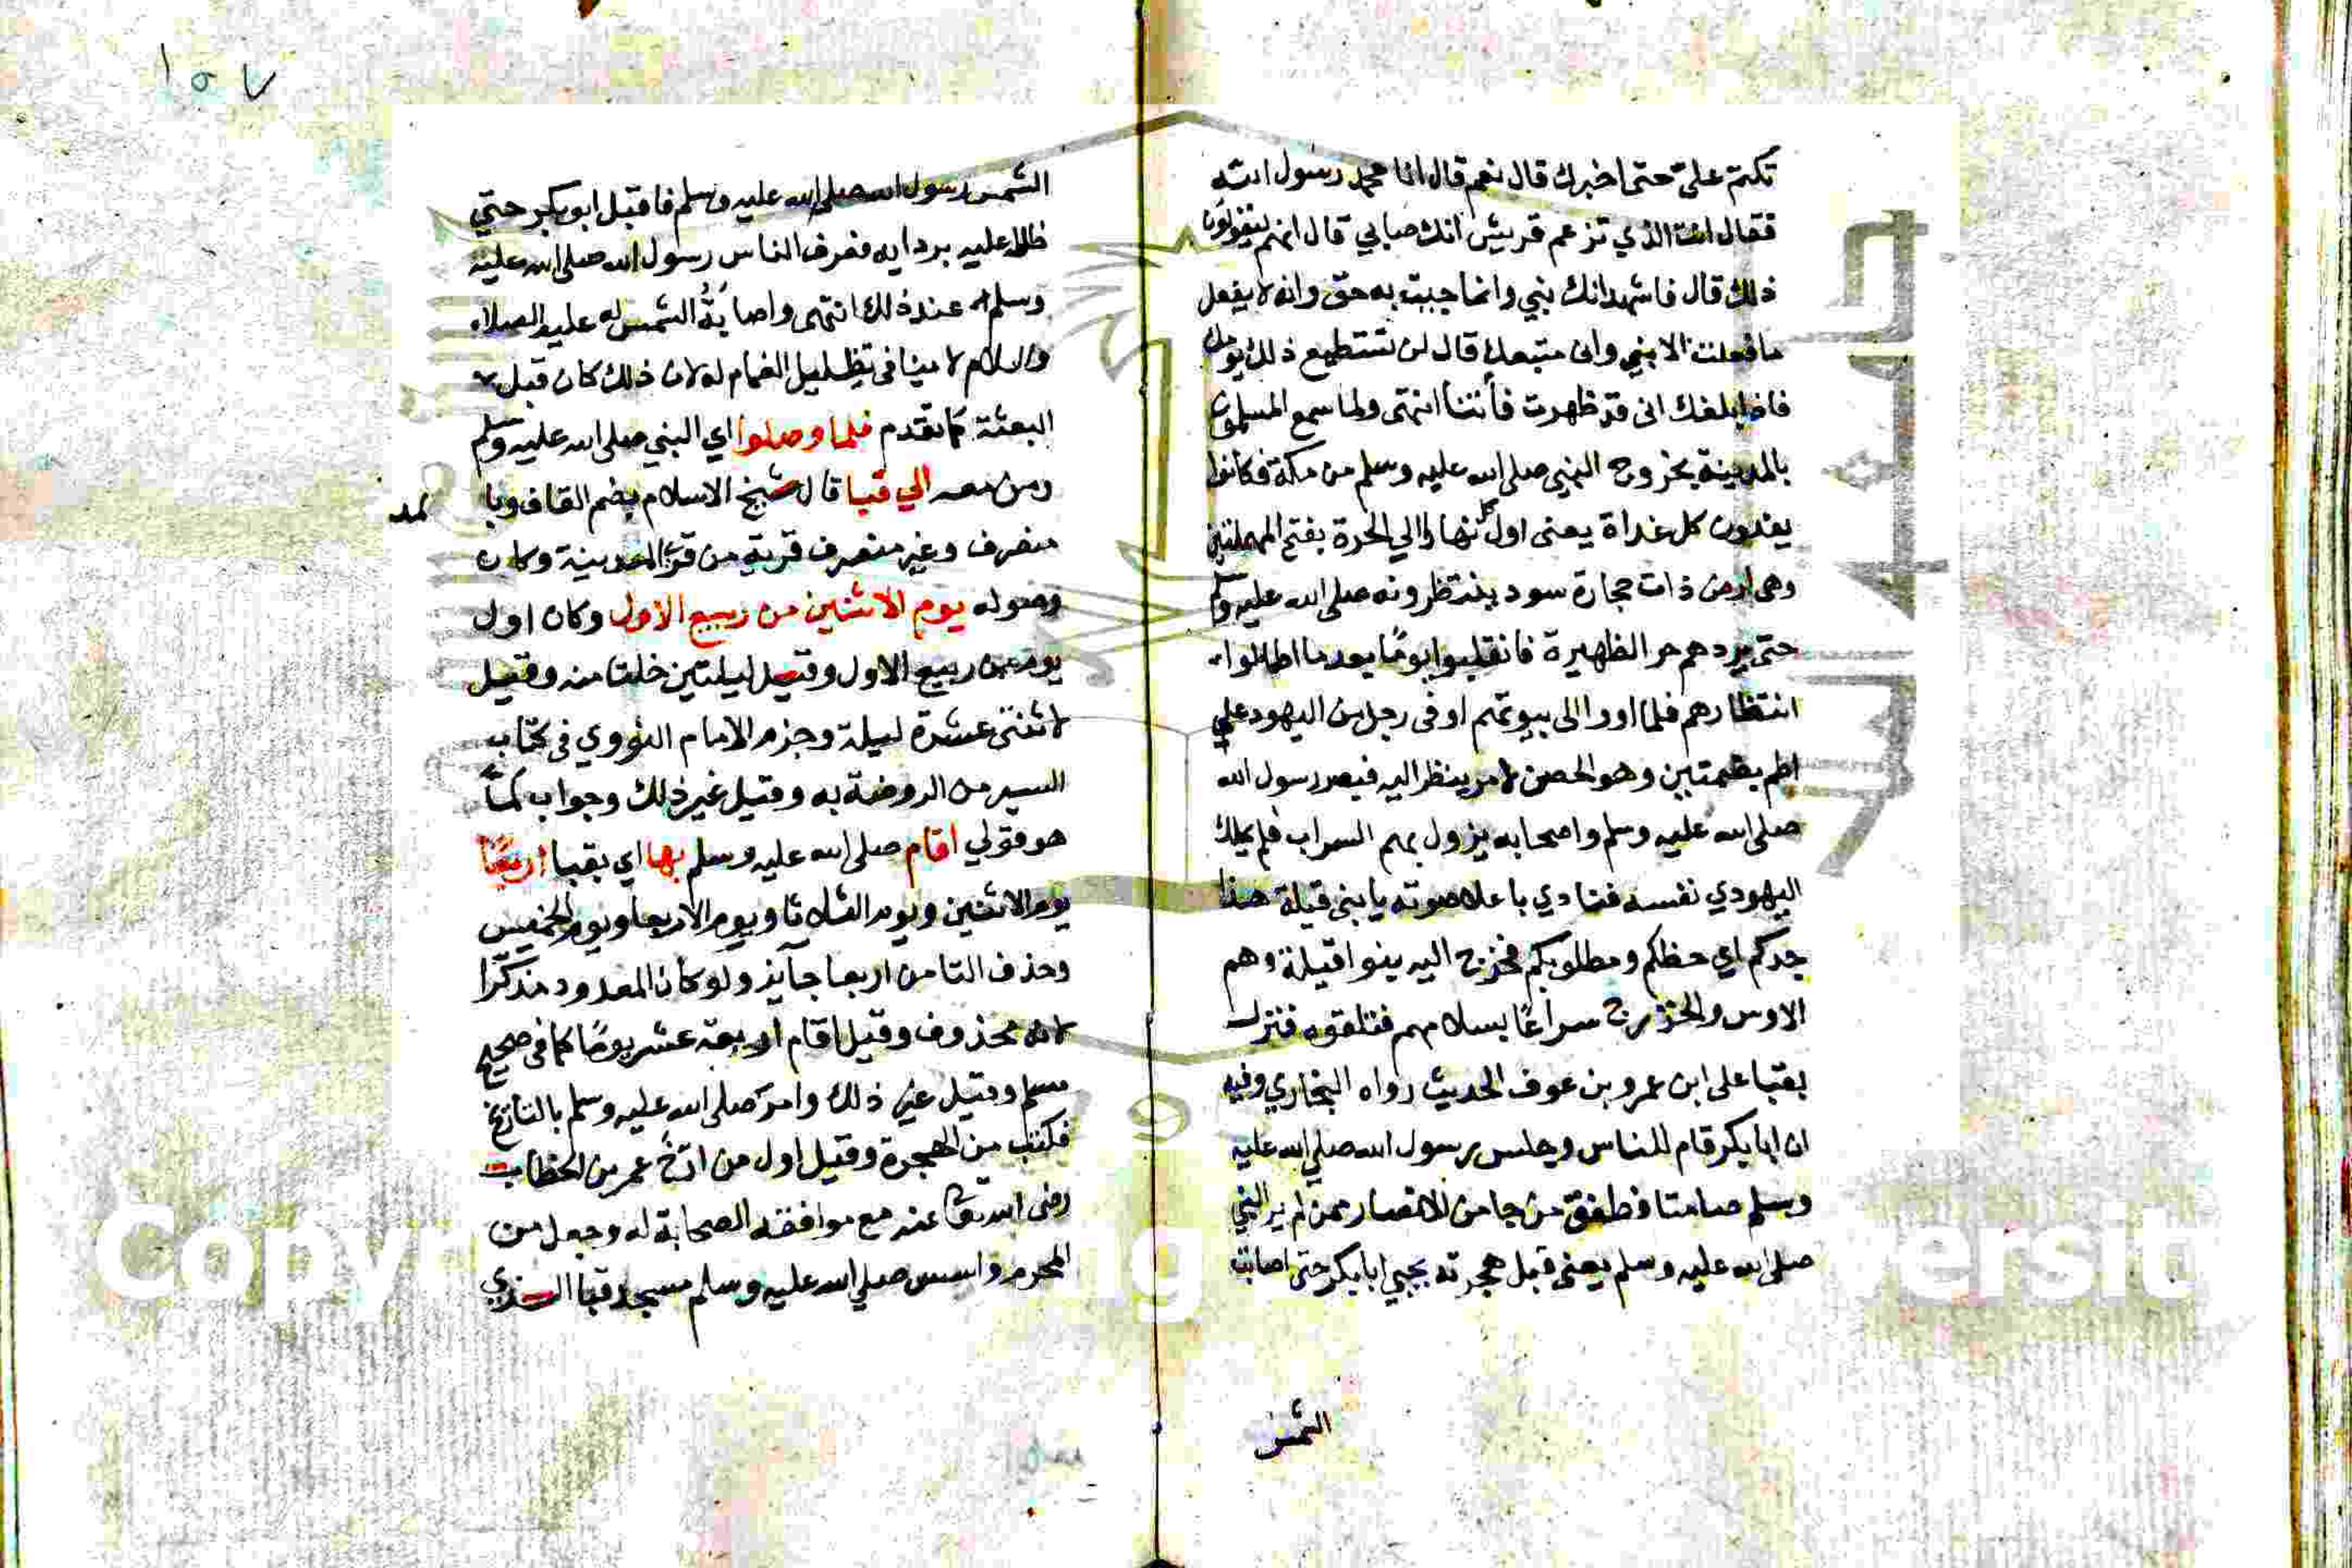 تكتم علىّ حتى اخبرك قال نعم قال انا محمد رسول الله
فقال انت الذي تزعم قريش انك صابي قال انهم ليقولون
ذلك قال فاشهد انك نبي وانما جيت به حق وانه لا يفعل
ما فعلت الا نبي وانى متبعك قال لن تستطيع ذلك يومك
فاذا بلغك انى قد ظهرت فأتنا انتهى ولما سمع المسلمون
بالمدينة بخروج النبي صلى الله عليه وسلم من مكة فكانوا
يغدون كل غداة يعنى اول كل نهار الي الحرة بفتح المهملتين
وهى ارض ذات حجارة سود ينتظرونه صلى الله عليه وسلم
حتى يردهم حر الظهيرة فانقلبوا يومًا بعد ما اطالوا
انتظارهم فلما اووا الى بيوتهم اوفى رجل من اليهود علي
اطم بضمتين وهو الحصن لامر ينظر اليه فبصر رسول الله
صلى الله عليه وسلم واصحابه يزول بهم السراب فلم يملك
اليهودي نفسه فنادي باعلا صوته يا بنى قيلة هذا
جدكم اي حظكم ومطلوبكم فخرج اليه بنوا قيلة وهم
الاوس والخزرج سراعًا بسلاحهم فتلقوه فنزل
بقبا على ابن عمرو بن عوف الحديث رواه البخاري وفيه
ان ابا بكر قام للناس وجلس رسول الله صلي الله عليه
وسلم صامتا فطفق من جا من الانصار ممن لم ير النبي
صلى الله عليه وسلم يعنى قبل هجرته يحيي ابا بكر حتى اصابت
الشمس
١٥٧
الشمس رسول الله صلى الله عليه وسلم فاقبل ابو بكر حتي
ظلل عليه بردايه فعرف الناس رسول الله صلى الله عليه
وسلم عند ذلك انتهى واصابة الشمس له عليه الصلاة
والسلام لا ينافى تظليل الغمام له لان ذلك كان قبل
البعثة كما تقدم فلما وصلوا اي النبي صلى الله عليه وسلم
ومن معه الي قبا قال شيخ الاسلام بضم القاف وبا
لمد
منصرف وغير منصرف قرية من قرى المدينة وكان
وصوله يوم الاثنين من ربيع الاول وكان اول
يوم من ربيع الاول وقيل لليلتين خلتا منه وقيل
لاثنتى عشرة ليلة وجزم الامام النووي في كتاب
السير من الروضة به وقيل غير ذلك وجواب لما
هو قولي اقام صلى الله عليه وسلم بها اي بقبا اربعًا
يوم الاثنين ويوم الثلاثا ويوم الاربعا ويوم الخميس
وحذف التا من اربعا جايز ولو كان المعدود مذكرًا
لانه محذوف وقيل اقام اربعة عشر يومًا كما في صحيح
مسلم وقيل غير ذلك وامر صلى الله عليه وسلم بالتاريخ
فكتب من الهجرة وقيل اول من ارّخ عمر بن الخطاب
رضى الله تعا عنه مع موافقة الصحابة له وجعل من
المحرم واسس صلي الله عليه وسلم مسجد قبا الذي